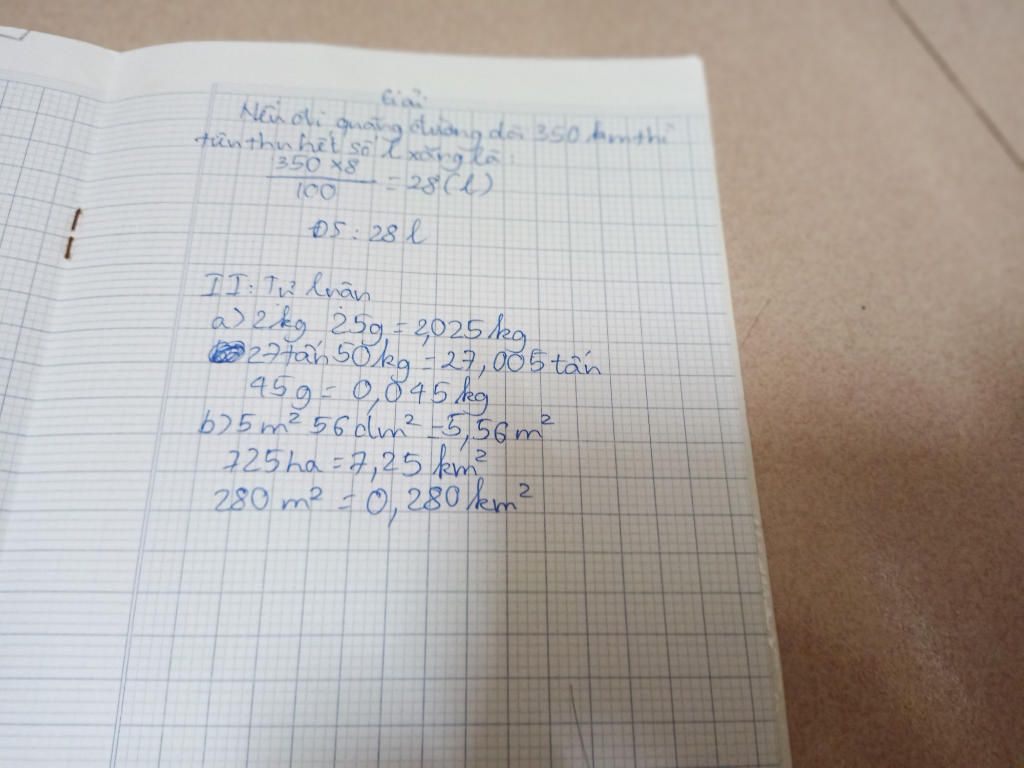 Giải
Nếu đi quãng đường dài 350 km thì
tiêu thụ hết số l xăng là:
350 x 8
100
= 28 (l)
ĐS : 28 l
II: Tự luận
a) 2 kg 25g = 2,025 kg
27 tấn 50 kg = 27,005 tấn
45g = 0,045 kg
b) 5 m² 56 dm² = 5,56 m²
725 ha = 7,25 km²
280 m² = 0,280 km²